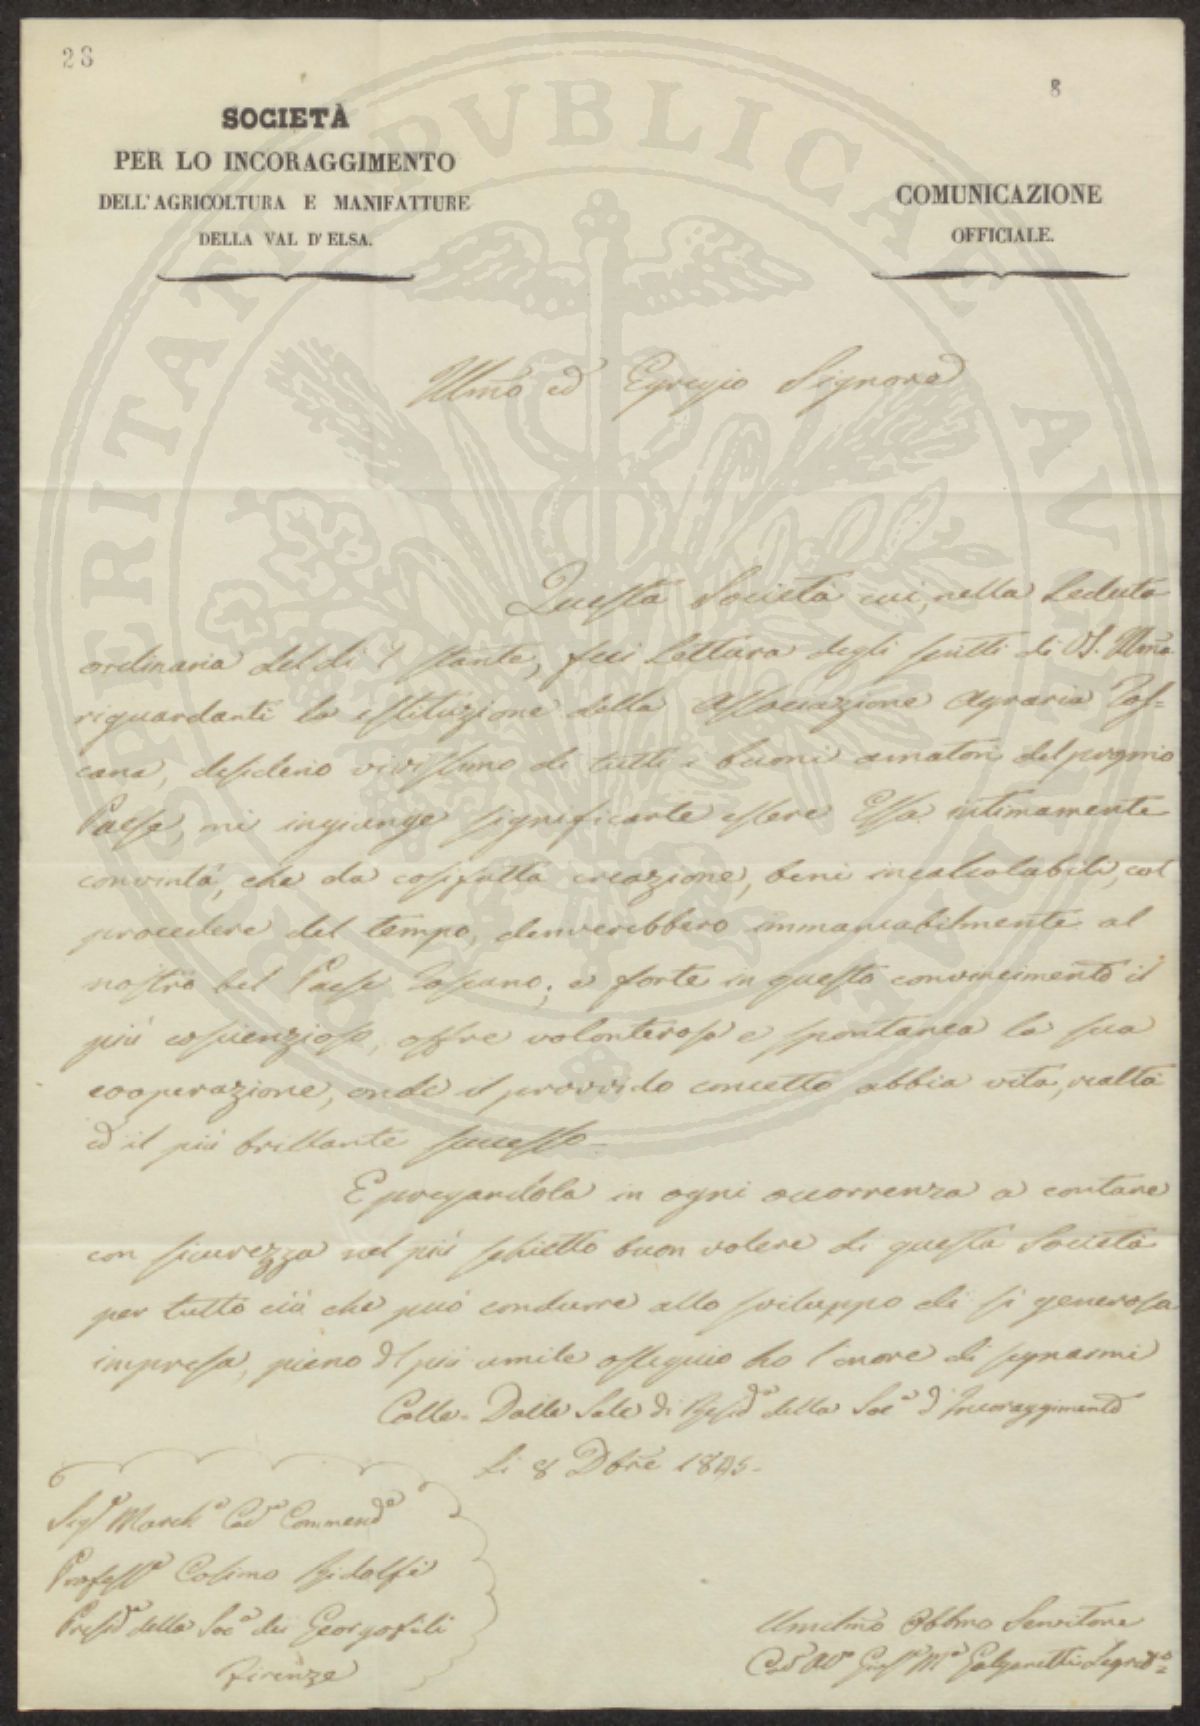 28
8
SOCIETÀ
PER LO INCORAGGIMENTO
DELL'AGRICOLTURA E MANIFATTURE
DELLA VAL D'ELSA.
COMUNICAZIONE
OFFICIALE.
PROSPERITATI PVBLICAE AVGENDAE
Illmo ed Egregio Signore
Questa Società cui, nella Seduta
ordinaria del dì stante, feci Lettura degli scritti di VS. Illma
riguardanti la istituzione della Associazione Agraria Tos=
cana, desiderio vivissimo di tutti i buoni amatori del proprio
Paese, mi ingiunge significarle essere Essa intimamente
convinta, che da cosifatta creazione, beni incalcolabili, col
procedere del tempo, deriverebbero immancabilmente al
nostro bel Paese Toscano; e forte in questo convincimento il
più coscienzioso, offre volonterosa e spontanea la sua
cooperazione, onde il provvido concetto abbia vita, realtà
ed il più brillante successo.
E pregandola in ogni occorrenza a contare
con sicurezza nel più schietto buon volere di questa Società
per tutto ciò che può condurre allo sviluppo di sì generosa
impresa, pieno del più umile ossequio ho l'onore di segnarmi
Colle. Dalle Sale di Resid.a della Soc.a d'Incoraggimento
Li 8 Dbre 1845.
Sig.r March.e Cav.e Commend.e
Profess.e Cosimo Ridolfi
Presid.e della Soc.a dei Georgofili
Firenze
Umilmo Obblmo Servitore